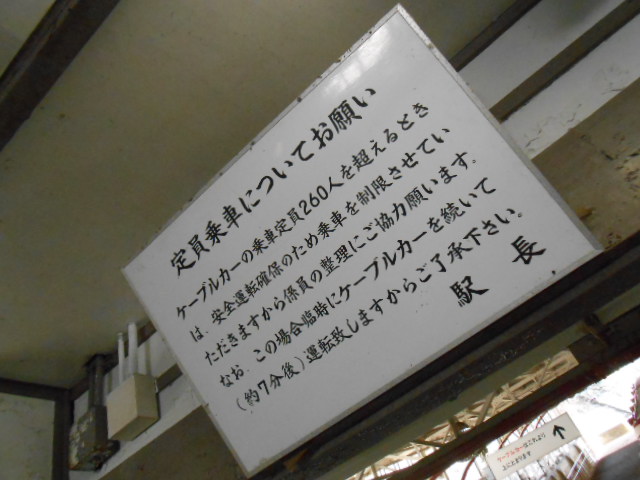 定員乗車についてお願い
ケーブルカーの乗車定員260人を超えるとき
は、安全運転確保のため乗車を制限させてい
ただきますから係員の整理にご協力願います。
なお、この場合臨時にケーブルカーを続いて
(約7分後)運転致しますからご了承下さい。
駅長
ケーブルカーはこれより
上にとまります
↑